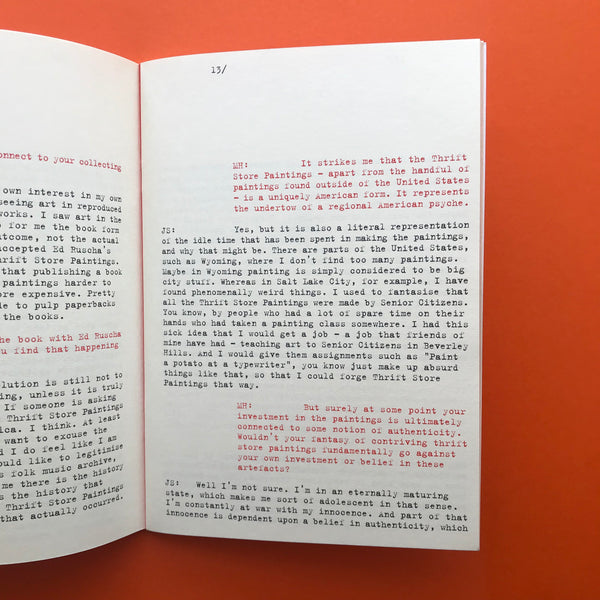 onnect to your collecting
own interest in my own
seeing art in reproduced
works. I saw art in the
for me the book form
outcome, not the actual
accepted Ed Ruscha's
Thrift Store Paintings.
that publishing a book
paintings harder to
ore expensive. Pretty
de to pulp paperbacks
the books.
the book with Ed Ruscha
ou find that happening
olution is still not to
ing, unless it is truly
If someone is asking
Thrift Store Paintings
ica. I think. At least
want to excuse the
d I do feel like I am
ould like to legitimise
s folk music archive.
me there is the history
s the history that
Thrift Store Paintings
that actually occurred.
13/
MH: It strikes me that the Thrift
Store Paintings - apart from the handful of
paintings found outside of the United States
- is a uniquely American form. It represents
the undertow of a regional American psyche.
JS: Yes, but it is also a literal representation
of the idle time that has been spent in making the paintings,
and why that might be. There are parts of the United States,
such as Wyoming, where I don't find too many paintings.
Maybe in Wyoming painting is simply considered to be big
city stuff. Whereas in Salt Lake City, for example, I have
found phenomenally weird things. I used to fantasise that
all the Thrift Store Paintings were made by Senior Citizens.
You know, by people who had a lot of spare time on their
hands who had taken a painting class somewhere. I had this
sick idea that I would get a job - a job that friends of
mine have had - teaching art to Senior Citizens in Beverley
Hills. And I would give them assignments such as "Paint
a potato at a typewriter", you know just make up absurd
things like that, so that I could forge Thrift Store
Paintings that way.
MH: But surely at some point your
investment in the paintings is ultimately
connected to some notion of authenticity.
Wouldn't your fantasy of contriving thrift
store paintings fundamentally go against
your own investment or belief in these
artefacts?
JS: Well I'm not sure. I'm in an eternally maturing
state, which makes me sort of adolescent in that sense.
I'm constantly at war with my innocence. And part of that
innocence is dependent upon a belief in authenticity, which